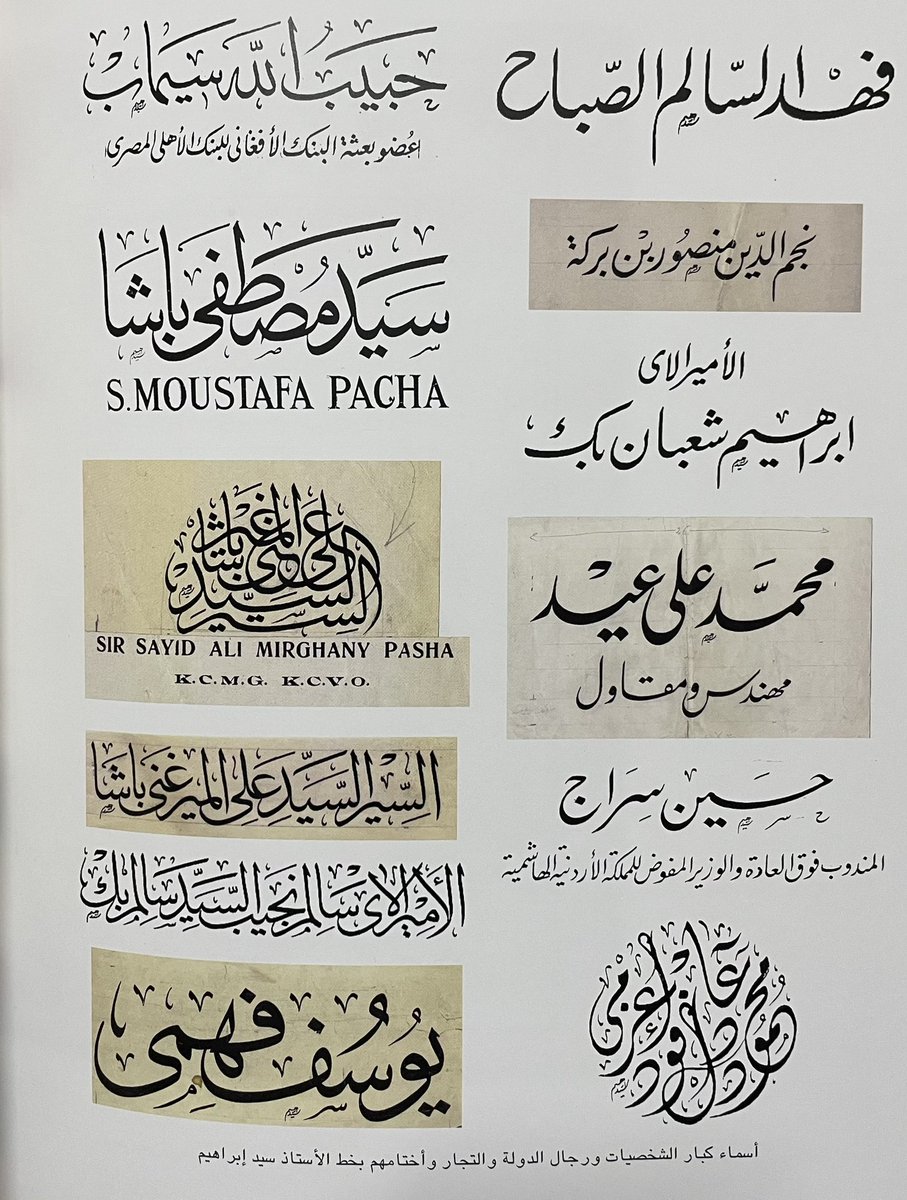 فهد السالم الصباح
نجم الدين منصور بن بركة
الأميرالاى
ابراهيم شعبان بك
محمد على عيد
مهندس ومقاول
حسين سراج
المندوب فوق العادة والوزير المفوض للمملكة الأردنية الهاشمية
محمود
حبيب الله سيماب
عضو بعثة البنك الأفغانى للبنك الأهلى المصرى
سيد مصطفى باشا
S.MOUSTAFA PACHA
السير السيد على الميرغنى باشا
SIR SAYID ALI MIRGHANY PASHA
K.C.M.G. K.C.V.O.
السير السيد على الميرغنى باشا
الأميرالاى سالم نجيب السيد سالم بك
يوسف فهمى
أسماء كبار الشخصيات ورجال الدولة والتجار وأختامهم بخط الأستاذ سيد إبراهيم